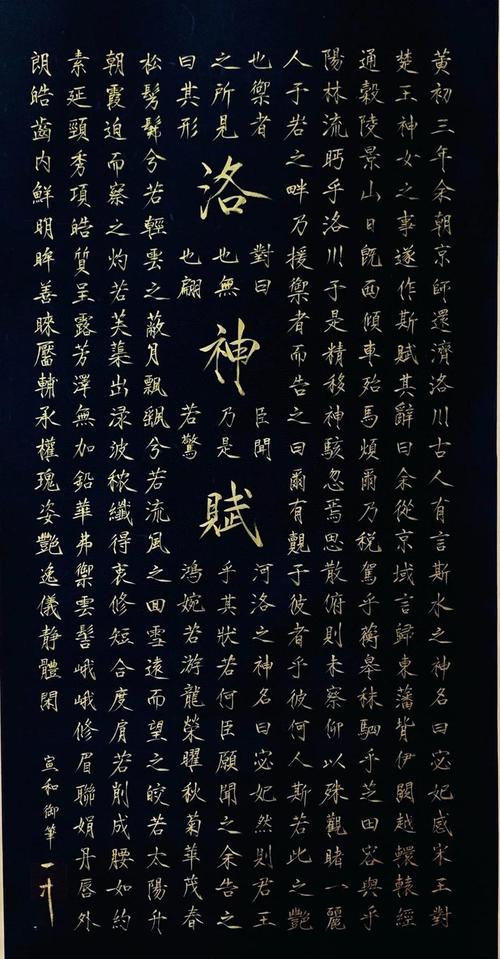 洛神賦
黃初三年余朝京師還濟洛川古人有言斯水之神名曰宓妃感宋王對
楚王神女之事遂作斯賦其辭曰余從京域言歸東藩背伊闕越轘轅經
通轂陵景山日既西傾車殆馬煩爾乃税駕乎蘅皋秣駟乎芝田容與乎
陽林流眄乎洛川于是精移神駭忽焉思散俯則未察仰以殊觀睹一麗
人于岩之畔乃援禦者而告之曰爾有覿于彼者乎彼何人斯若此之艷
也禦者對曰臣聞河洛之神名曰宓妃然則君王
之所見也無乃是乎其狀若何臣願聞之余告之
曰其形也翩若驚鴻婉若游龍榮曜秋菊華茂春
松髣髴兮若輕雲之蔽月飄飖兮若流風之回雪遠而望之皎若太陽升
朝霞迫而察之灼若芙蕖出淥波秾纖得衷修短合度肩若削成腰如約
素延頸秀項皓質呈露芳澤無加鉛華弗禦雲髻峨峨修眉聯娟丹唇外
朗皓齒内鮮明眸善睞靨輔承權瑰姿艷逸儀静體閑
宣和御筆